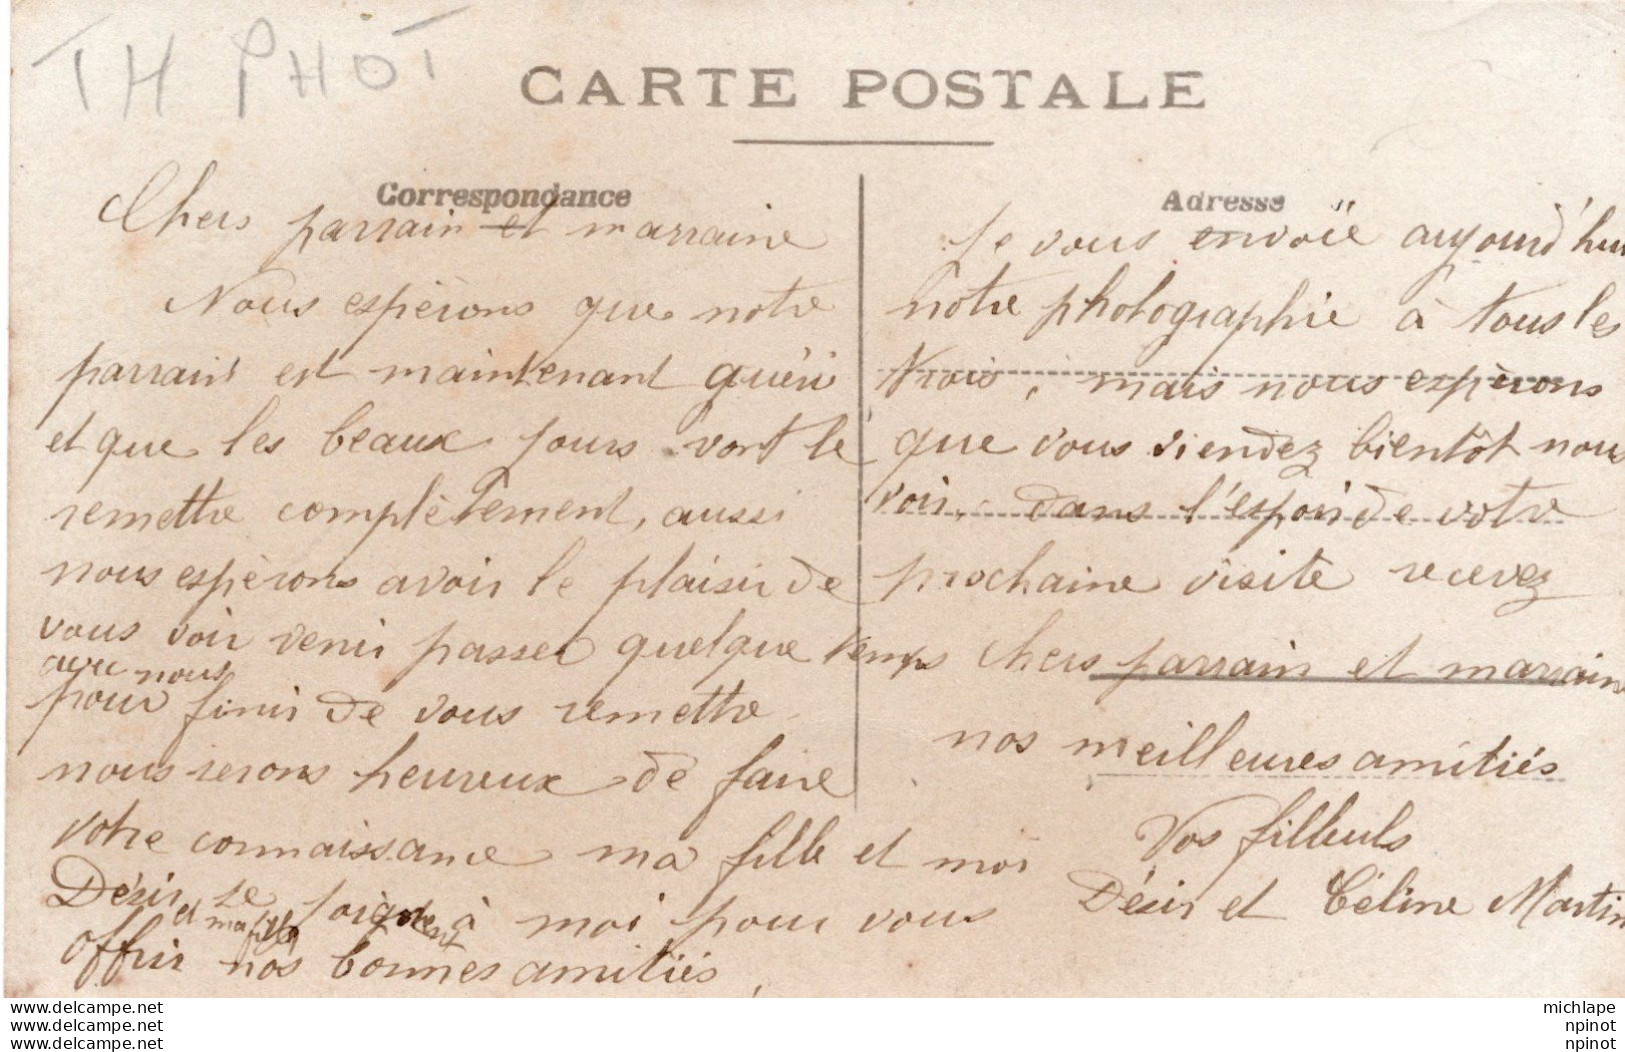 TH PHOT
CARTE POSTALE
Correspondance
Chers parrain et marraine
Nous espèrons que notre
parrain est maintenant guéri
et que les beaux jours vont le
remettre complètement, aussi
nous espèrons avoir le plaisir de
vous voir venir passer quelque temps
avec nous
pour finir de vous remettre
nous serons heureux de faire
votre connaissance ma fille et moi
Désir se joignent à moi pour vous
et ma fille
offrir nos bonnes amitiés,
Adresse
Je vous envoïe aujourd'hui
notre photographie à tous les
trois, mais nous espèrons
que vous viendez bientôt nous
voir, dans l'espoir de votre
prochaine visite recevez
chers parrain et marraine
nos meilleures amitiés
Vos filleuls
Désir et Céline Martin
www.delcampe.net
www.delcampe.net
www.delcampe.net
michlape
npinot
npinot